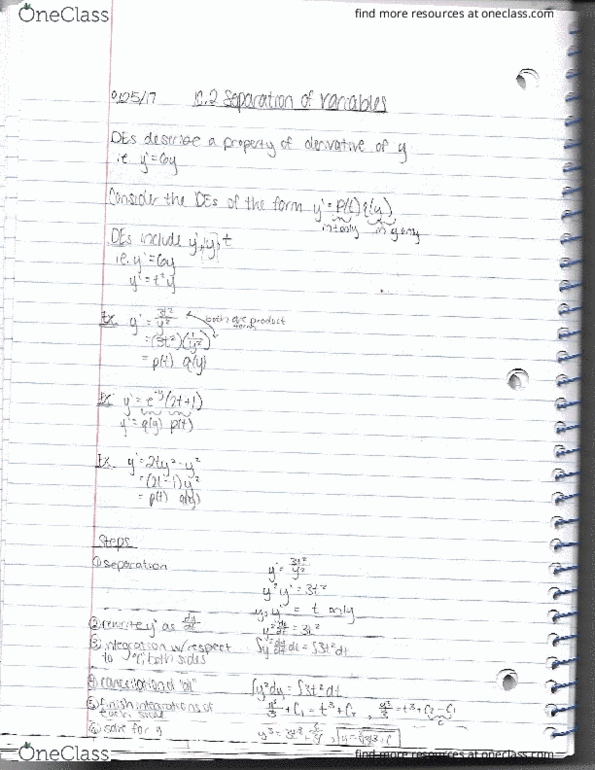 OneClass
find more resources at oneclass.com
10.2 Separation of Variables
DEs describe a property of derivative of y
i.e. y'=6y
Consider the DEs of the form y'=p(t)q(y)
in t only in y only
DEs include y', y, t
i.e. y'=6y
y'=t²y
Ex. y'=3t²/y²
both are product
=(3t²)(1/y²)
=p(t) q(y)
Ex. y'=e^-y(2t+1)
y'=q(y) p(t)
Ex. y'=2ty²-y²
=(2t-1)y²
=p(t) q(y)
Steps
① separation y'=3t²/y²
y²y'=3t²
= t only
② rewrite y' as dy/dt y² dy/dt=3t²
③ integration w/ respect ∫y² dy/dt dt=∫3t²dt
to "t", both sides
④ cancellation of "dt" ∫y²dy=∫3t²dt
⑤ finish integrations of y³/3+C₁=t³+C₂, y³/3=t³+C₂-C₁
each side
⑥ solve for y
OneClass
find more resources at oneclass.com